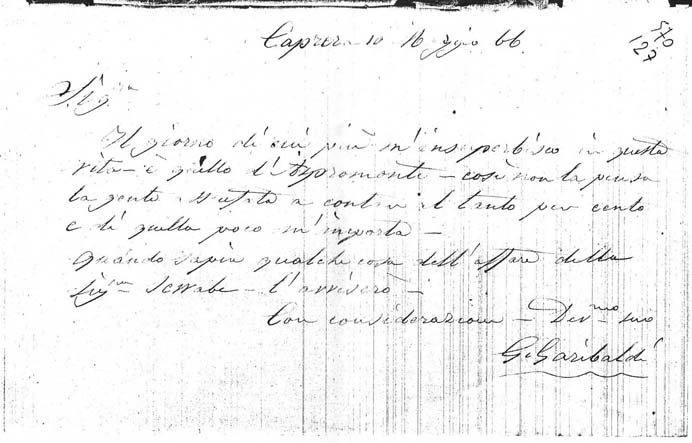 Caprera 10 Maggio 66.
570
127
Sig.ra
Il giorno di cui più m'insuperbisco in questa
vita - è quello d'Aspromonte - così non la pensa
la gente a contar il tanto per cento
e di quella poco m'importa -
Quando sapia qualche cosa dell'affare della
Sig.ra Scwabe - l'avviserò -
Con considerazione - Dev.mo suo
G. Garibaldi